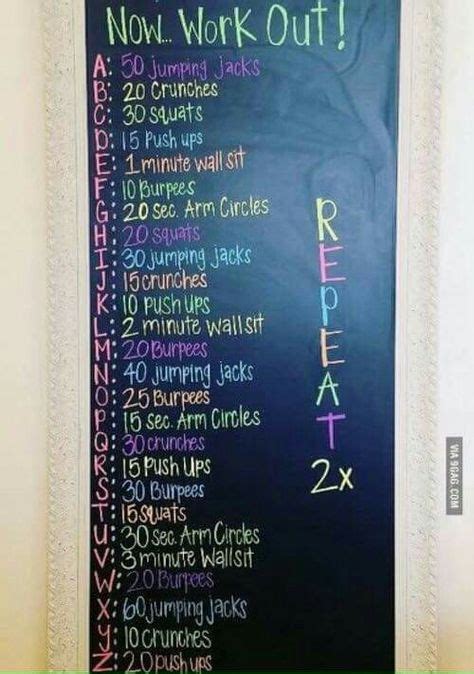 Now... Work Out!
A: 50 jumping jacks
B: 20 Crunches
C: 30 squats
D: 15 Push ups
E: 1 minute wall sit
F: 10 Burpees
G: 20 sec. Arm Circles
H: 20 squats
I: 30 jumping jacks
J: 15 crunches
K: 10 push ups
L: 2 minute wall sit
M: 20 Burpees
N: 40 jumping jacks
O: 25 Burpees
P: 15 sec. Arm Circles
Q: 30 crunches
R: 15 Push Ups
S: 30 Burpees
T: 15 squats
U: 30 sec. Arm Circles
V: 3 minute Wall sit
W: 20 Burpees
X: 60 jumping jacks
Y: 10 crunches
Z: 20 push ups
REPEAT
2x
VIA 9GAG.COM